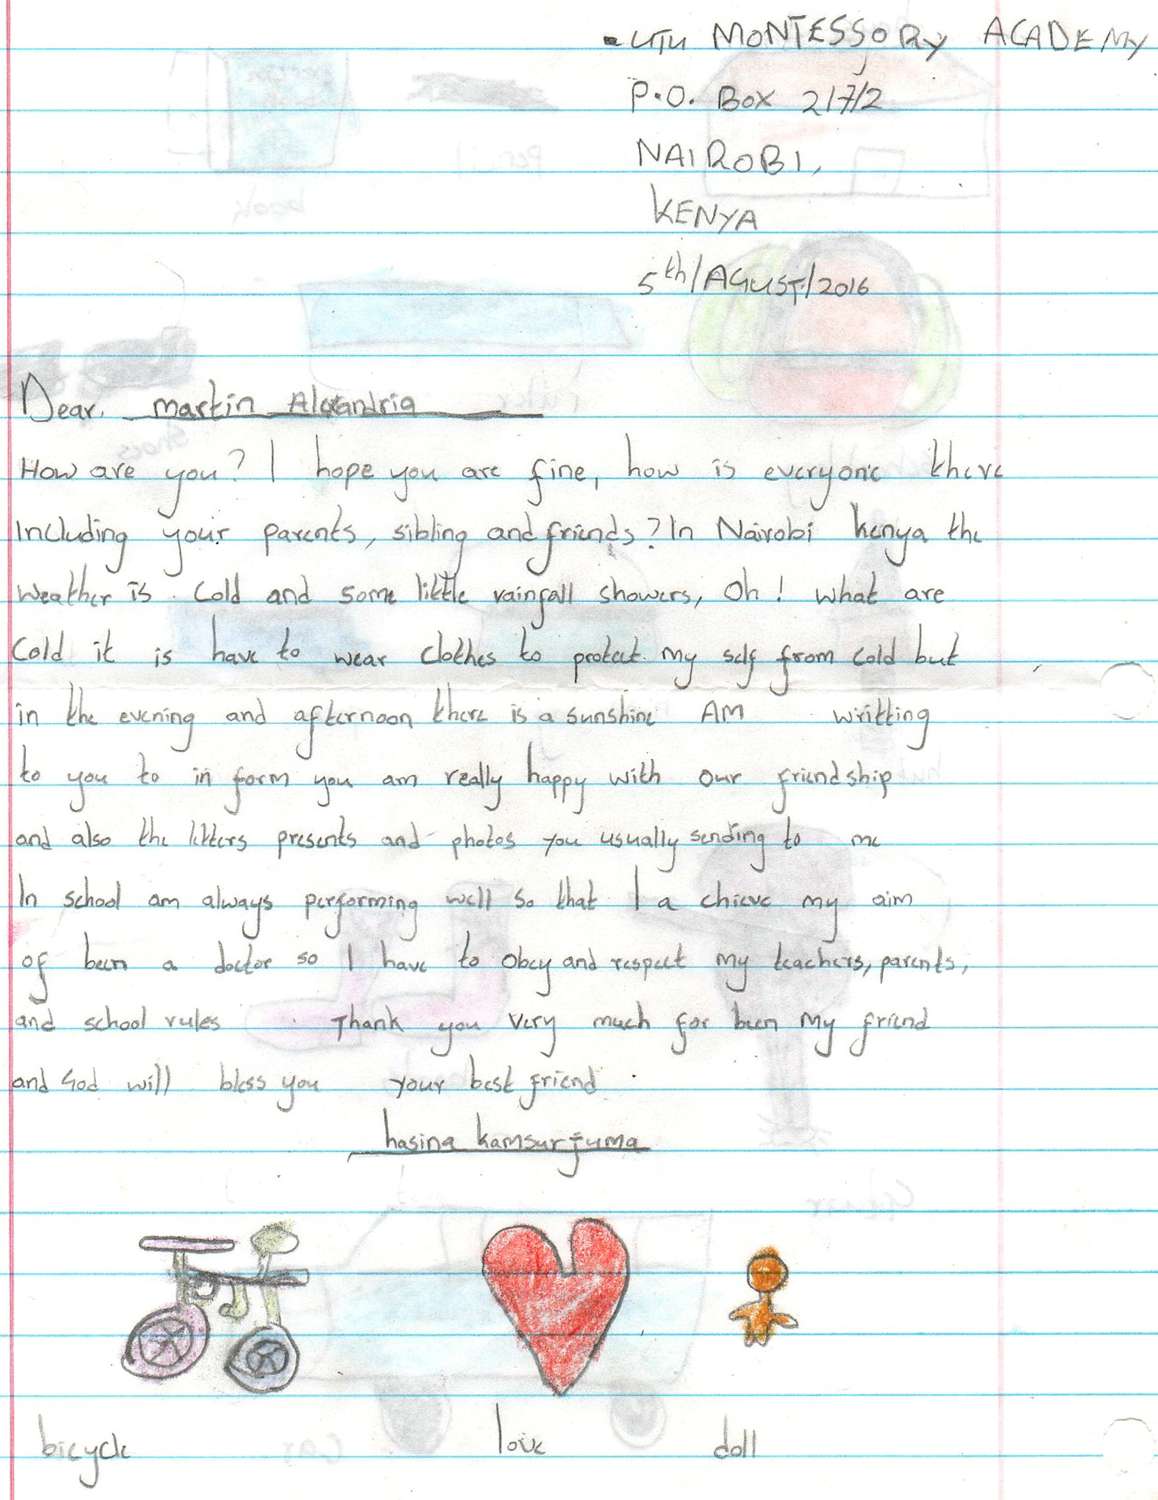 UTU MONTESSORY ACADEMY
P.O. BOX 21712
NAIROBI,
KENYA
5th/AGUST/2016
Dear, martin Alexandria
How are you? I hope you are fine, how is everyone there
Including your parents, sibling and friends? In Nairobi kenya the
weather is cold and some little rainfall showers, Oh! what are
Cold it is have to wear clothes to protect my self from cold but
in the evening and afternoon there is a sunshine AM writting
to you to in form you am really happy with our friendship
and also the letters presents and photos you usually sending to me
In school am always performing well so that I a chieve my aim
of been a doctor so I have to obey and respect my teachers, parents,
and school rules . Thank you very much for been my friend
and God will bless you your best friend .
hasina kamsur juma
bicycle love doll